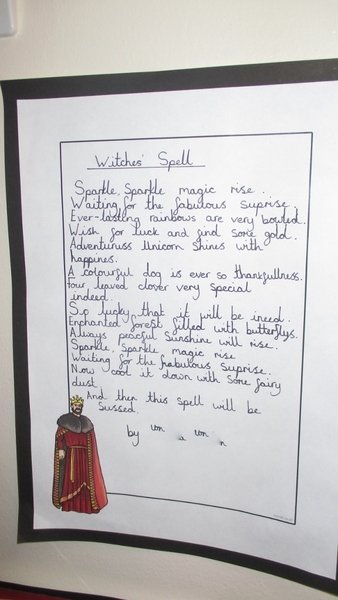 Witches' Spell
Sparkle, Sparkle magic rise.
Waiting for the fabulous suprise.
Ever-lasting rainbows are very bowled.
Wish for luck and find some gold.
Adventuress Unicorn Shines with
happines.
A colourful dog is ever so thankfullness.
Four leaved clover very special
indeed.
So lucky that it will be ineed.
Enchanted forest filled with butterflys.
Always peaceful Sunshine will rise.
Sparkle, Sparkle magic rise
Waiting for the fabulous Suprise.
Now cool it down with Some fairy
dust
And then this spell will be
Sussed.
by